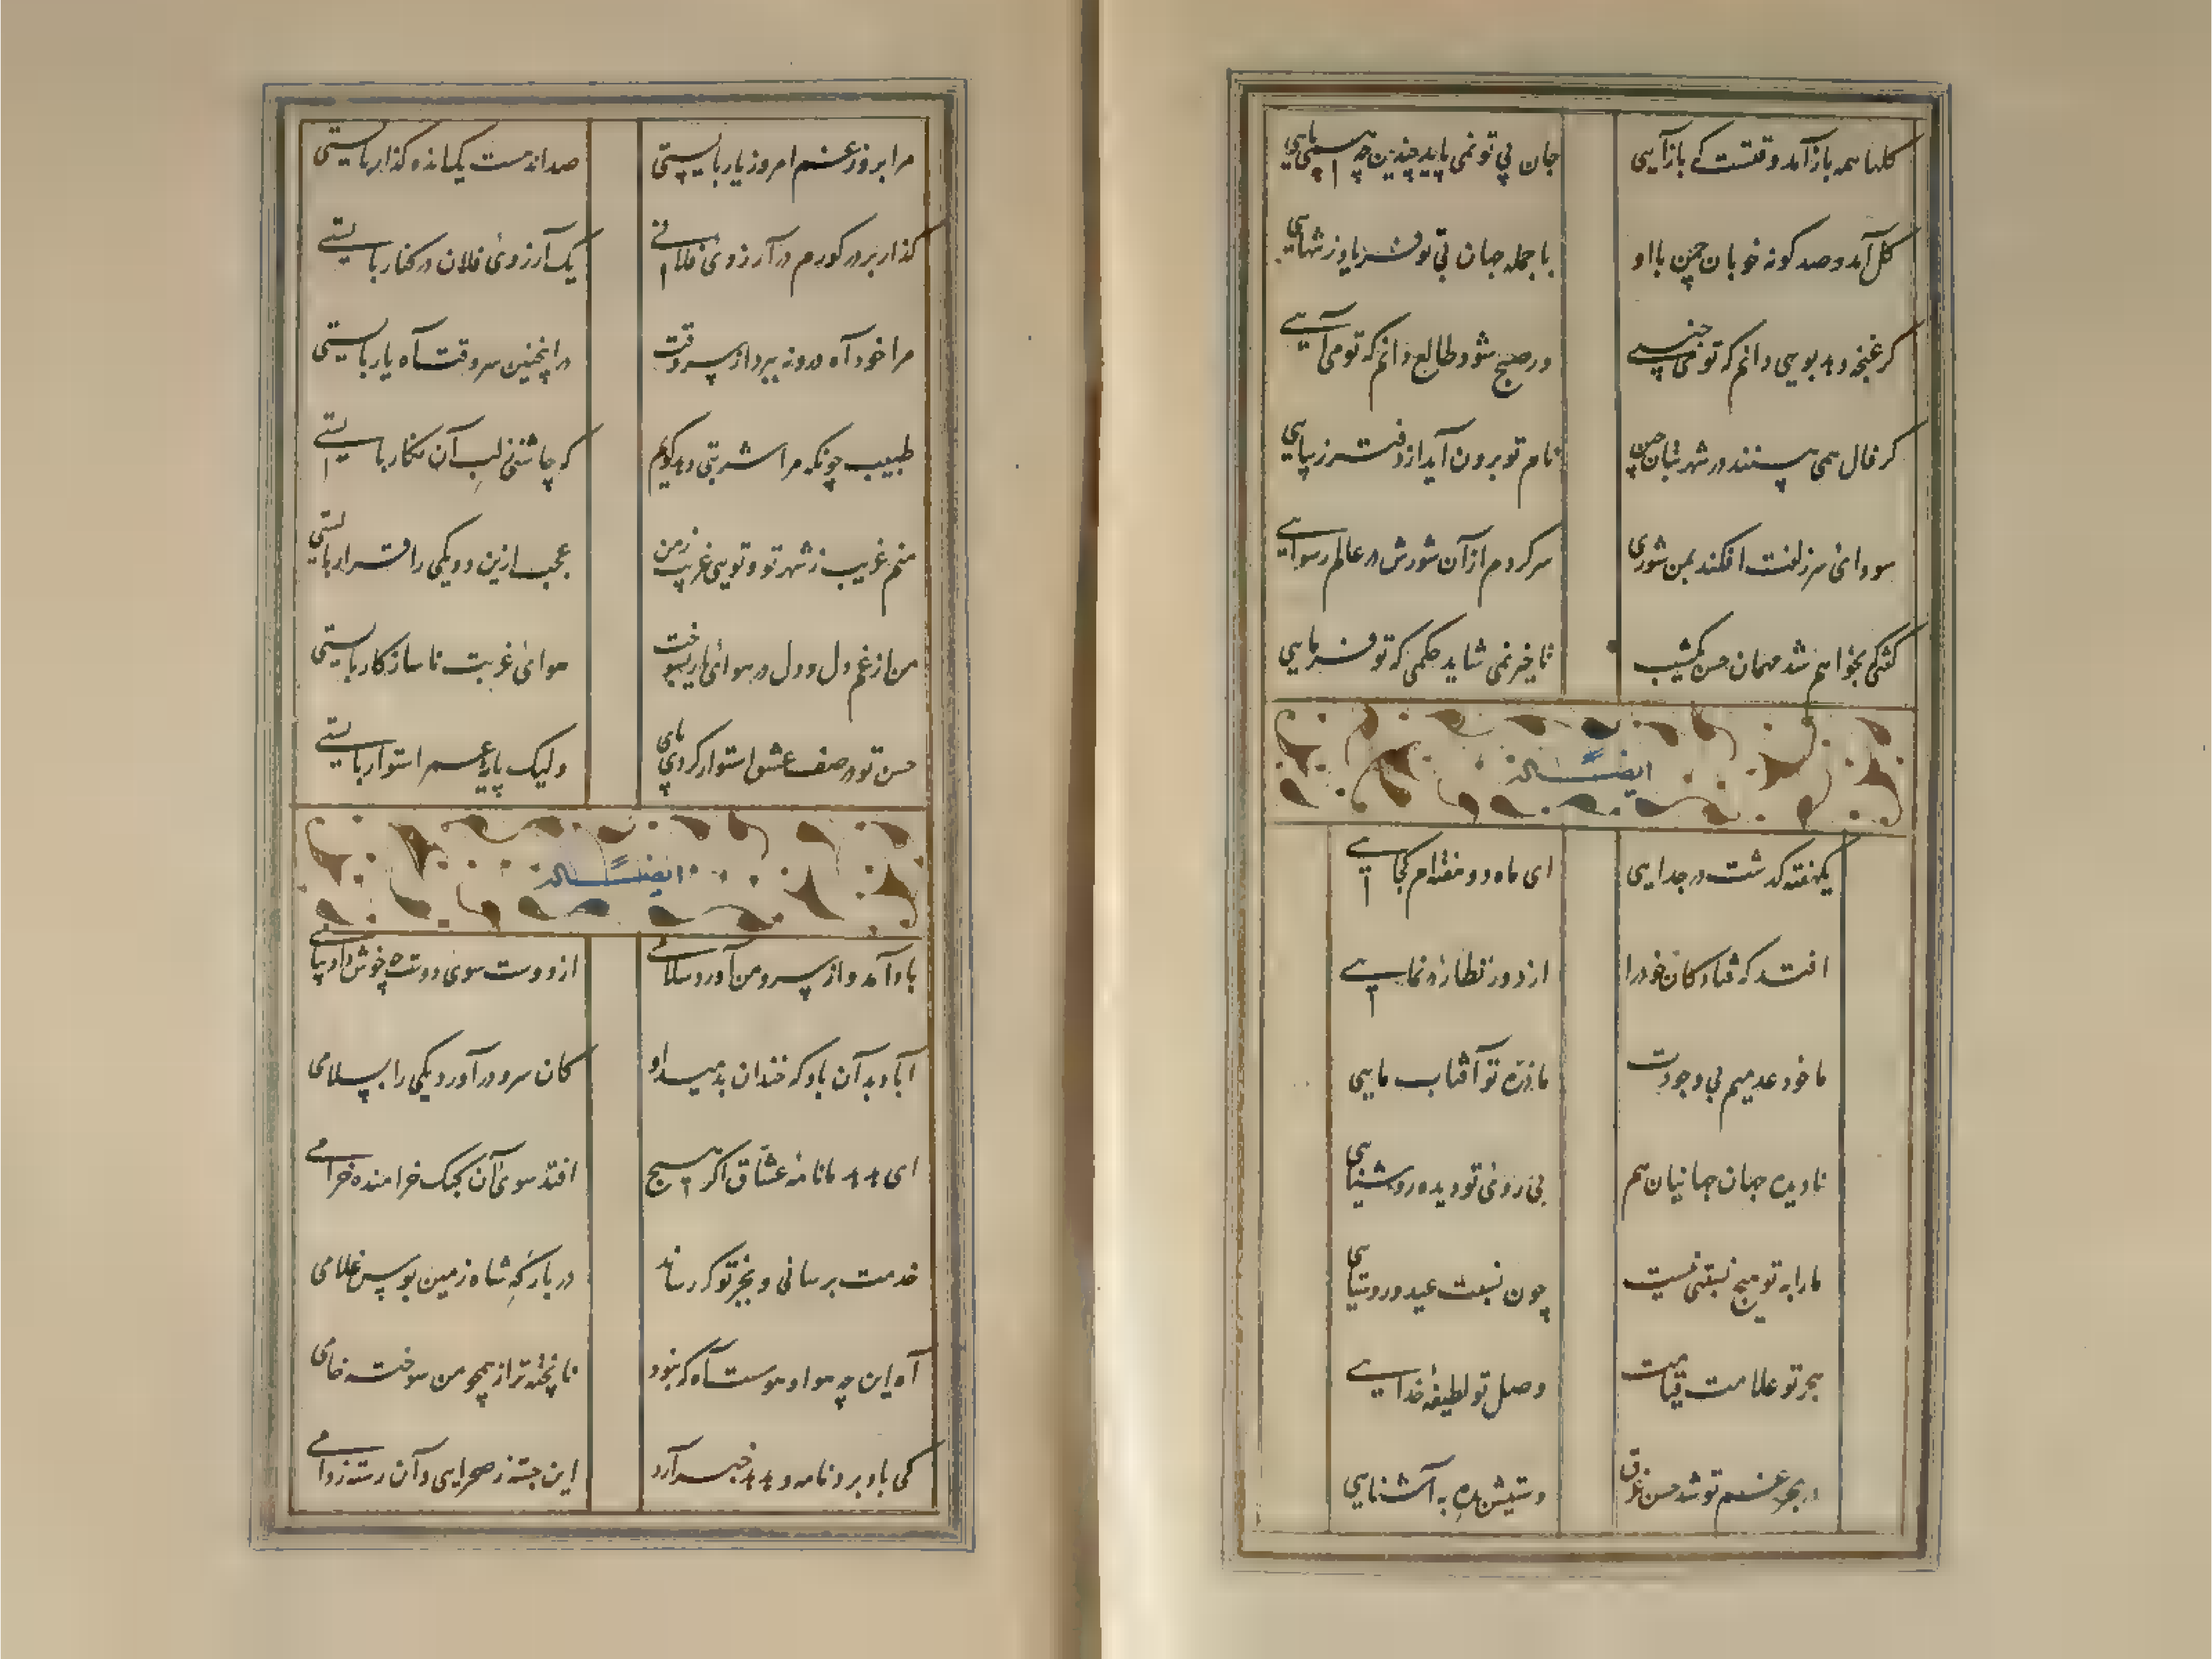 گلها همه باز آمد وقتست که باز آیی
جان بی تو نمی پاید چندین چه همی پایی
گل آمد و صد گونه خوبان چمن با او
با جمله جهان بی تو فریاد ز تنهایی
گر غنچه دهد بویی دانم که تو می خسبی
ور صبح شود طالع دانم که تو می آیی
گر فال همی بینند در شهر بتان چین
نام تو برون آید از دفتر زیبایی
سودای سر زلفت افکند بمن شوری
سر کردم از آن شورش در عالم رسوایی
گفتی که بخواهم شد مهمان حسن یکشب
تاخیر نمی شاید حکمی که تو فرمایی
ایضاً له
یکهفته گذشت در جدایی
ای ماه دو هفته ام کجایی
افتد که فتادگان خود را
از دور نظاره نمایی
ما خود عدمیم بی وجودت
ما ذره تو آفتاب مایی
نادیده جهان جهانیان هم
بی روی تو دیده روشنایی
ما را به تو هیچ نسبتی نیست
چون نسبت عید و روستایی
هجر تو علامت قیامت
وصل تو لطیفه خدایی
در بحر غم تو شد حسن غرق
دستیش بده به آشنایی
مرا بروز غم امروز یار بایستی
صد اندهست یک انده گذار بایستی
گذار بر در گورم در آرزوی فلانی
یک آرزوی فلان در کنار بایستی
مرا خود آه درونه بپرداز سر وقت
در اینچنین سر وقت آه یار بایستی
طبیب چونکه مرا شربتی دهد گویم
که چاشنی ز لب آن نگار بایستی
منم غریب ز شهر تو و تویی غریب ز من
عجب ازین دو یکی را قرار بایستی
من از غم دل و دل در هوای یار بسوخت
هوای غربت ما سازگار بایستی
حسن تو در صف عشق استوار کردی پای
ولیک پایه عمر استوار بایستی
ایضاً له
باد آمد و از سرو من آورد سلامی
از دوست سوی دوست چه خوش داد پیامی
آباد بر آن باد که خندان بدمید او
کان سرو در آورد یکی را بسلامی
ای باد مها نامه عشاق اگر هیچ
افتد سوی آن کبک خرامنده خرامی
خدمت برسانی و بجز تو که رساند
در بارگه شاه زمین بوس غلامی
آه این چه هوا و هوست آه که نبود
ناپخته تر از همچو من سوخته خامی
کی باد برد نامه و خبر آرد
این جسته ز صحرایی و آن رسته ز دامی